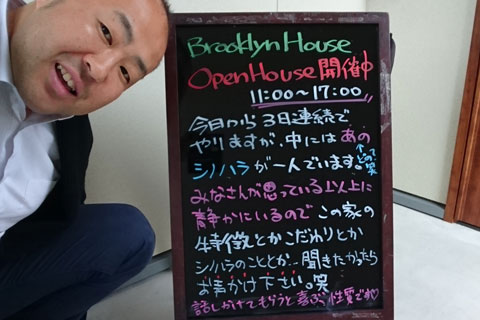 Brooklyn House
Open House 開催中
11:00〜17:00
今日から3日連続で
やりますが、中にはあの
シノハラが一人でいます。
みなさんが思っている以上に
静かにいるので この家の
特徴とか こだわりとか
シノハラのこととか… 聞きたかったら
お声かけ下さい。笑
話しかけてもらうと喜ぶ性質です♡